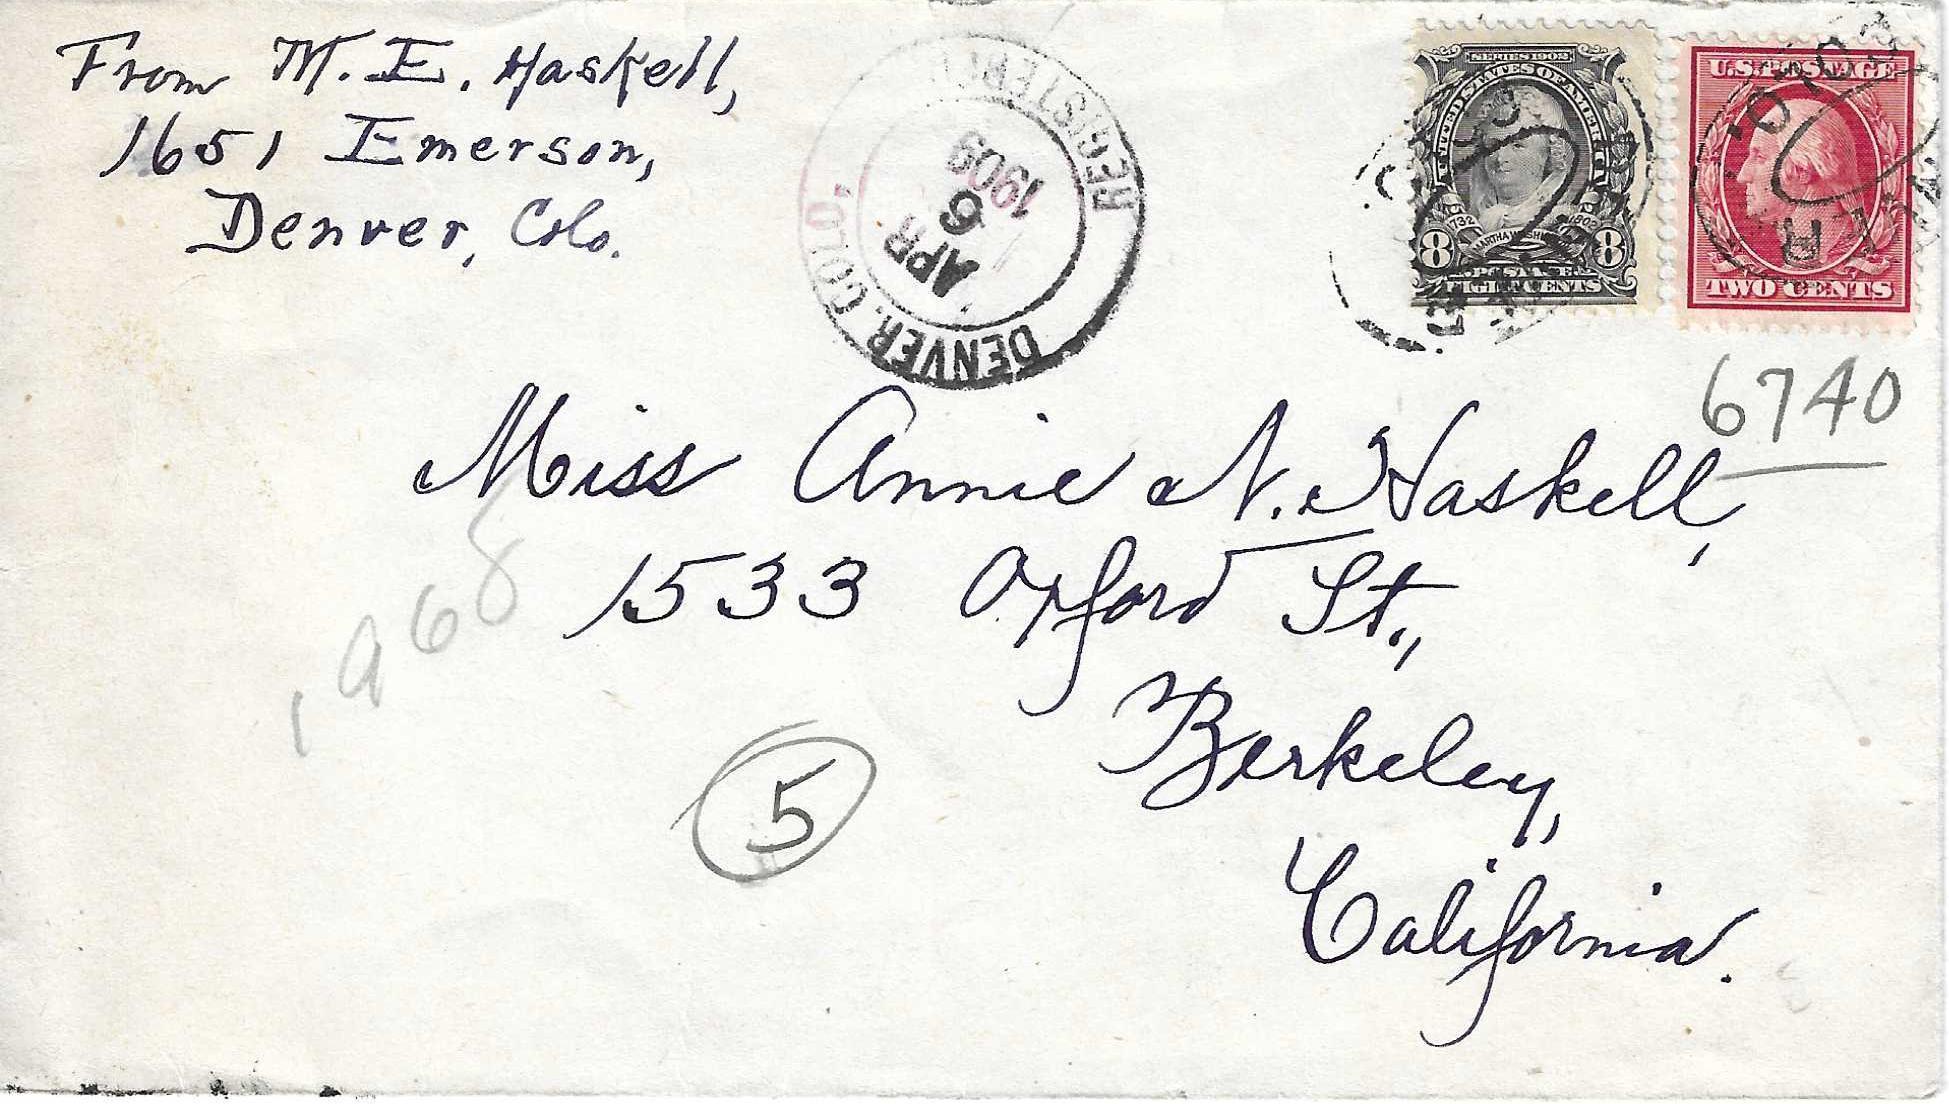 From M. E. Haskell,
1651 Emerson,
Denver, Colo.
REGISTERED
DENVER, COLO.
APR
6
1909
SERIES 1902
UNITED STATES OF AMERICA
1732
1802
MARTHA WASHINGTON
8
8
POSTAGE
EIGHT CENTS
U.S. POSTAGE
TWO CENTS
6740
Miss Annie N. Haskell,
1533 Oxford St.,
Berkeley,
California.
1968
5